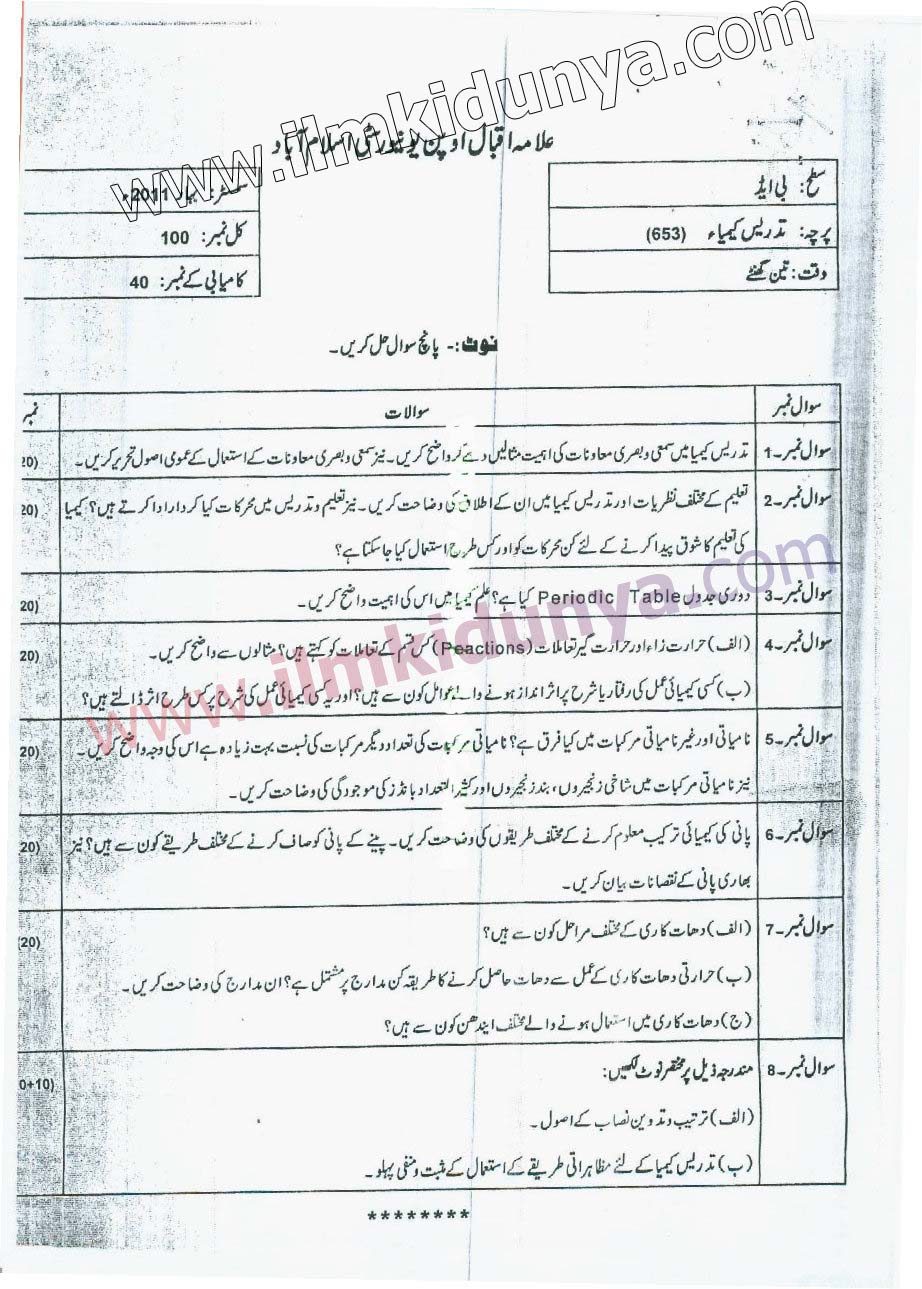 www.ilmkidunya.com
علامہ اقبال اوپن یونیورسٹی اسلام آباد
سطح: بی ایڈ
سمسٹر: بہار 2011ء
پرچہ: تدریس کیمیاء (653)
کل نمبر: 100
وقت: تین گھنٹے
کامیابی کے نمبر: 40
نوٹ:- پانچ سوال حل کریں۔
سوال نمبر سوالات نمبر
سوال نمبر۔1 تدریس کیمیا میں سمعی و بصری معاونات کی اہمیت مثالیں دے کر واضح کریں۔ نیز سمعی و بصری معاونات کے استعمال کے عمومی اصول تحریر کریں۔ 20)
سوال نمبر۔2 تعلیم کے مختلف نظریات اور تدریس کیمیا میں ان کے اطلاق کی وضاحت کریں۔ نیز تعلیم و تدریس میں محرکات کیا کردار ادا کرتے ہیں؟ کیمیا 20)
کی تعلیم کا شوق پیدا کرنے کے لئے کن محرکات کو اور کس طرح استعمال کیا جا سکتا ہے؟
سوال نمبر۔3 دوری جدول Periodic Table کیا ہے؟ علم کیمیا میں اس کی اہمیت واضح کریں۔ 20)
سوال نمبر۔4 (الف) حرارت زاء اور حرارت گیر تعاملات (Peactions) کس قسم کے تعاملات کو کہتے ہیں؟ مثالوں سے واضح کریں۔ 20)
(ب) کسی کیمیائی عمل کی رفتار یا شرح پر اثر انداز ہونے والے عوامل کون سے ہیں؟ اور یہ کسی کیمیائی عمل کی شرح پر کس طرح اثر ڈالتے ہیں؟
سوال نمبر۔5 نامیاتی اور غیر نامیاتی مرکبات میں کیا فرق ہے؟ نامیاتی مرکبات کی تعداد دیگر مرکبات کی نسبت بہت زیادہ ہے اس کی وجہ واضح کریں۔ 20)
نیز نامیاتی مرکبات میں شاخی زنجیروں، بند زنجیروں اور کثیر التعداد بانڈز کی موجودگی کی وضاحت کریں۔
سوال نمبر۔6 پانی کی کیمیائی ترکیب معلوم کرنے کے مختلف طریقوں کی وضاحت کریں۔ پینے کے پانی کو صاف کرنے کے مختلف طریقے کون سے ہیں؟ نیز 20)
بھاری پانی کے نقصانات بیان کریں۔
سوال نمبر۔7 (الف) دھات کاری کے مختلف مراحل کون سے ہیں؟ 20)
(ب) حرارتی دھات کاری کے عمل سے دھات حاصل کرنے کا طریقہ کن مدارج پر مشتمل ہے؟ ان مدارج کی وضاحت کریں۔
(ج) دھات کاری میں استعمال ہونے والے مختلف ایندھن کون سے ہیں؟
سوال نمبر۔8 مندرجہ ذیل پر مختصر نوٹ لکھیں: 0+10)
(الف) ترتیب و تدوین نصاب کے اصول۔
(ب) تدریس کیمیا کے لئے مظاہراتی طریقے کے استعمال کے مثبت و منفی پہلو۔
********
www.ilmkidunya.com